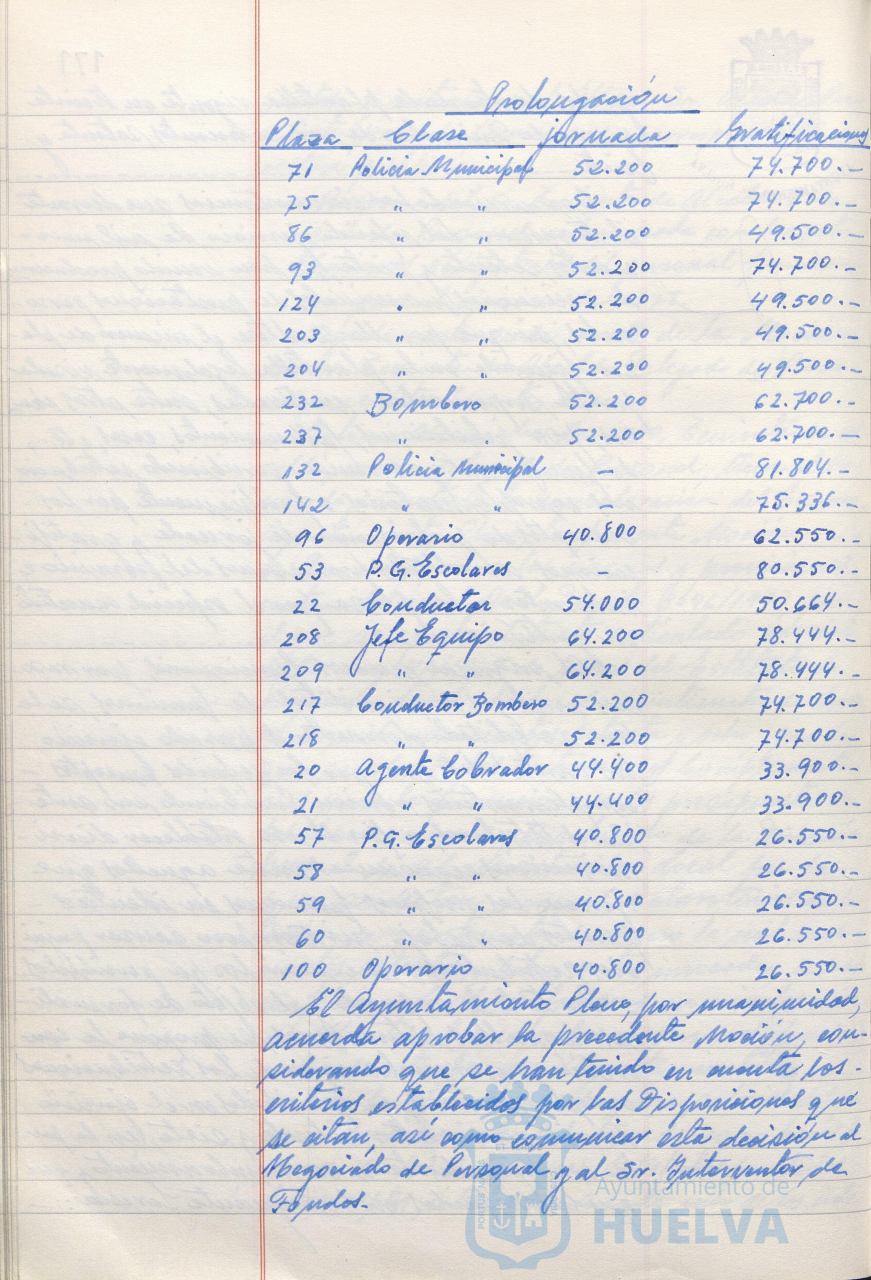 Prolongación
Plaza Clase jornada Gratificaciones
71 Policia Municipal 52.200 74.700.-
75 " " 52.200 74.700.-
86 " " 52.200 49.500.-
93 " " 52.200 74.700.-
124 " " 52.200 49.500.-
203 " " 52.200 49.500.-
204 " " 52.200 49.500.-
232 Bombero 52.200 62.700.-
237 " " 52.200 62.700.-
132 Policia Municipal - 81.804.-
142 " " - 75.336.-
96 Operario 40.800 62.550.-
53 P.G. Escolares - 80.550.-
22 Conductor 54.000 50.664.-
208 Jefe Equipo 64.200 78.444.-
209 " " 64.200 78.444.-
217 Conductor Bombero 52.200 74.700.-
218 " " 52.200 74.700.-
20 Agente Cobrador 44.400 33.900.-
21 " " 44.400 33.900.-
57 P.G. Escolares 40.800 26.550.-
58 " " 40.800 26.550.-
59 " " 40.800 26.550.-
60 " " 40.800 26.550.-
100 Operario 40.800 26.550.-
El Ayuntamiento Pleno, por unanimidad,
acuerda aprobar la precedente Moción, con-
siderando que se han tenido en cuenta los-
criterios establecidos por las Disposiciones que
se citan, así como comunicar esta decisión al
Negociado de Personal y al Sr. Interventor de
Fondos.-
Ayuntamiento de
HUELVA